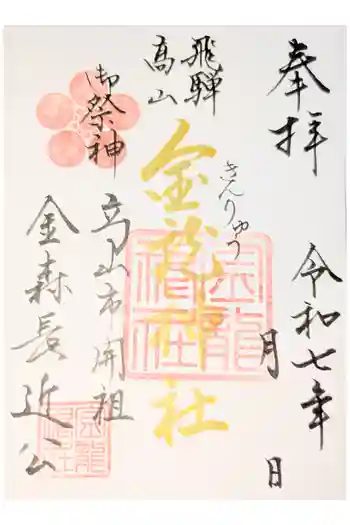 奉拝
令和七年
月
日
飛騨
高山
きんりゅう
金龍神社
御祭神
高山市開祖
金森長近公
金龍神社
金龍神社